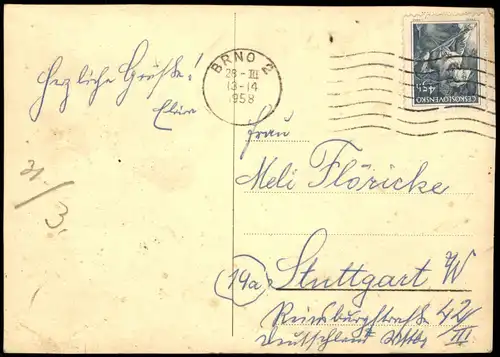 Herzliche Grüße!
31/3.
BRNO 2
28-III
13-14
1958
ČESKOSLOVENSKO
45h
Frau
Meli Flöricke
(14a) Stuttgart W
Reinsburgstraße 42/III
Deutschland